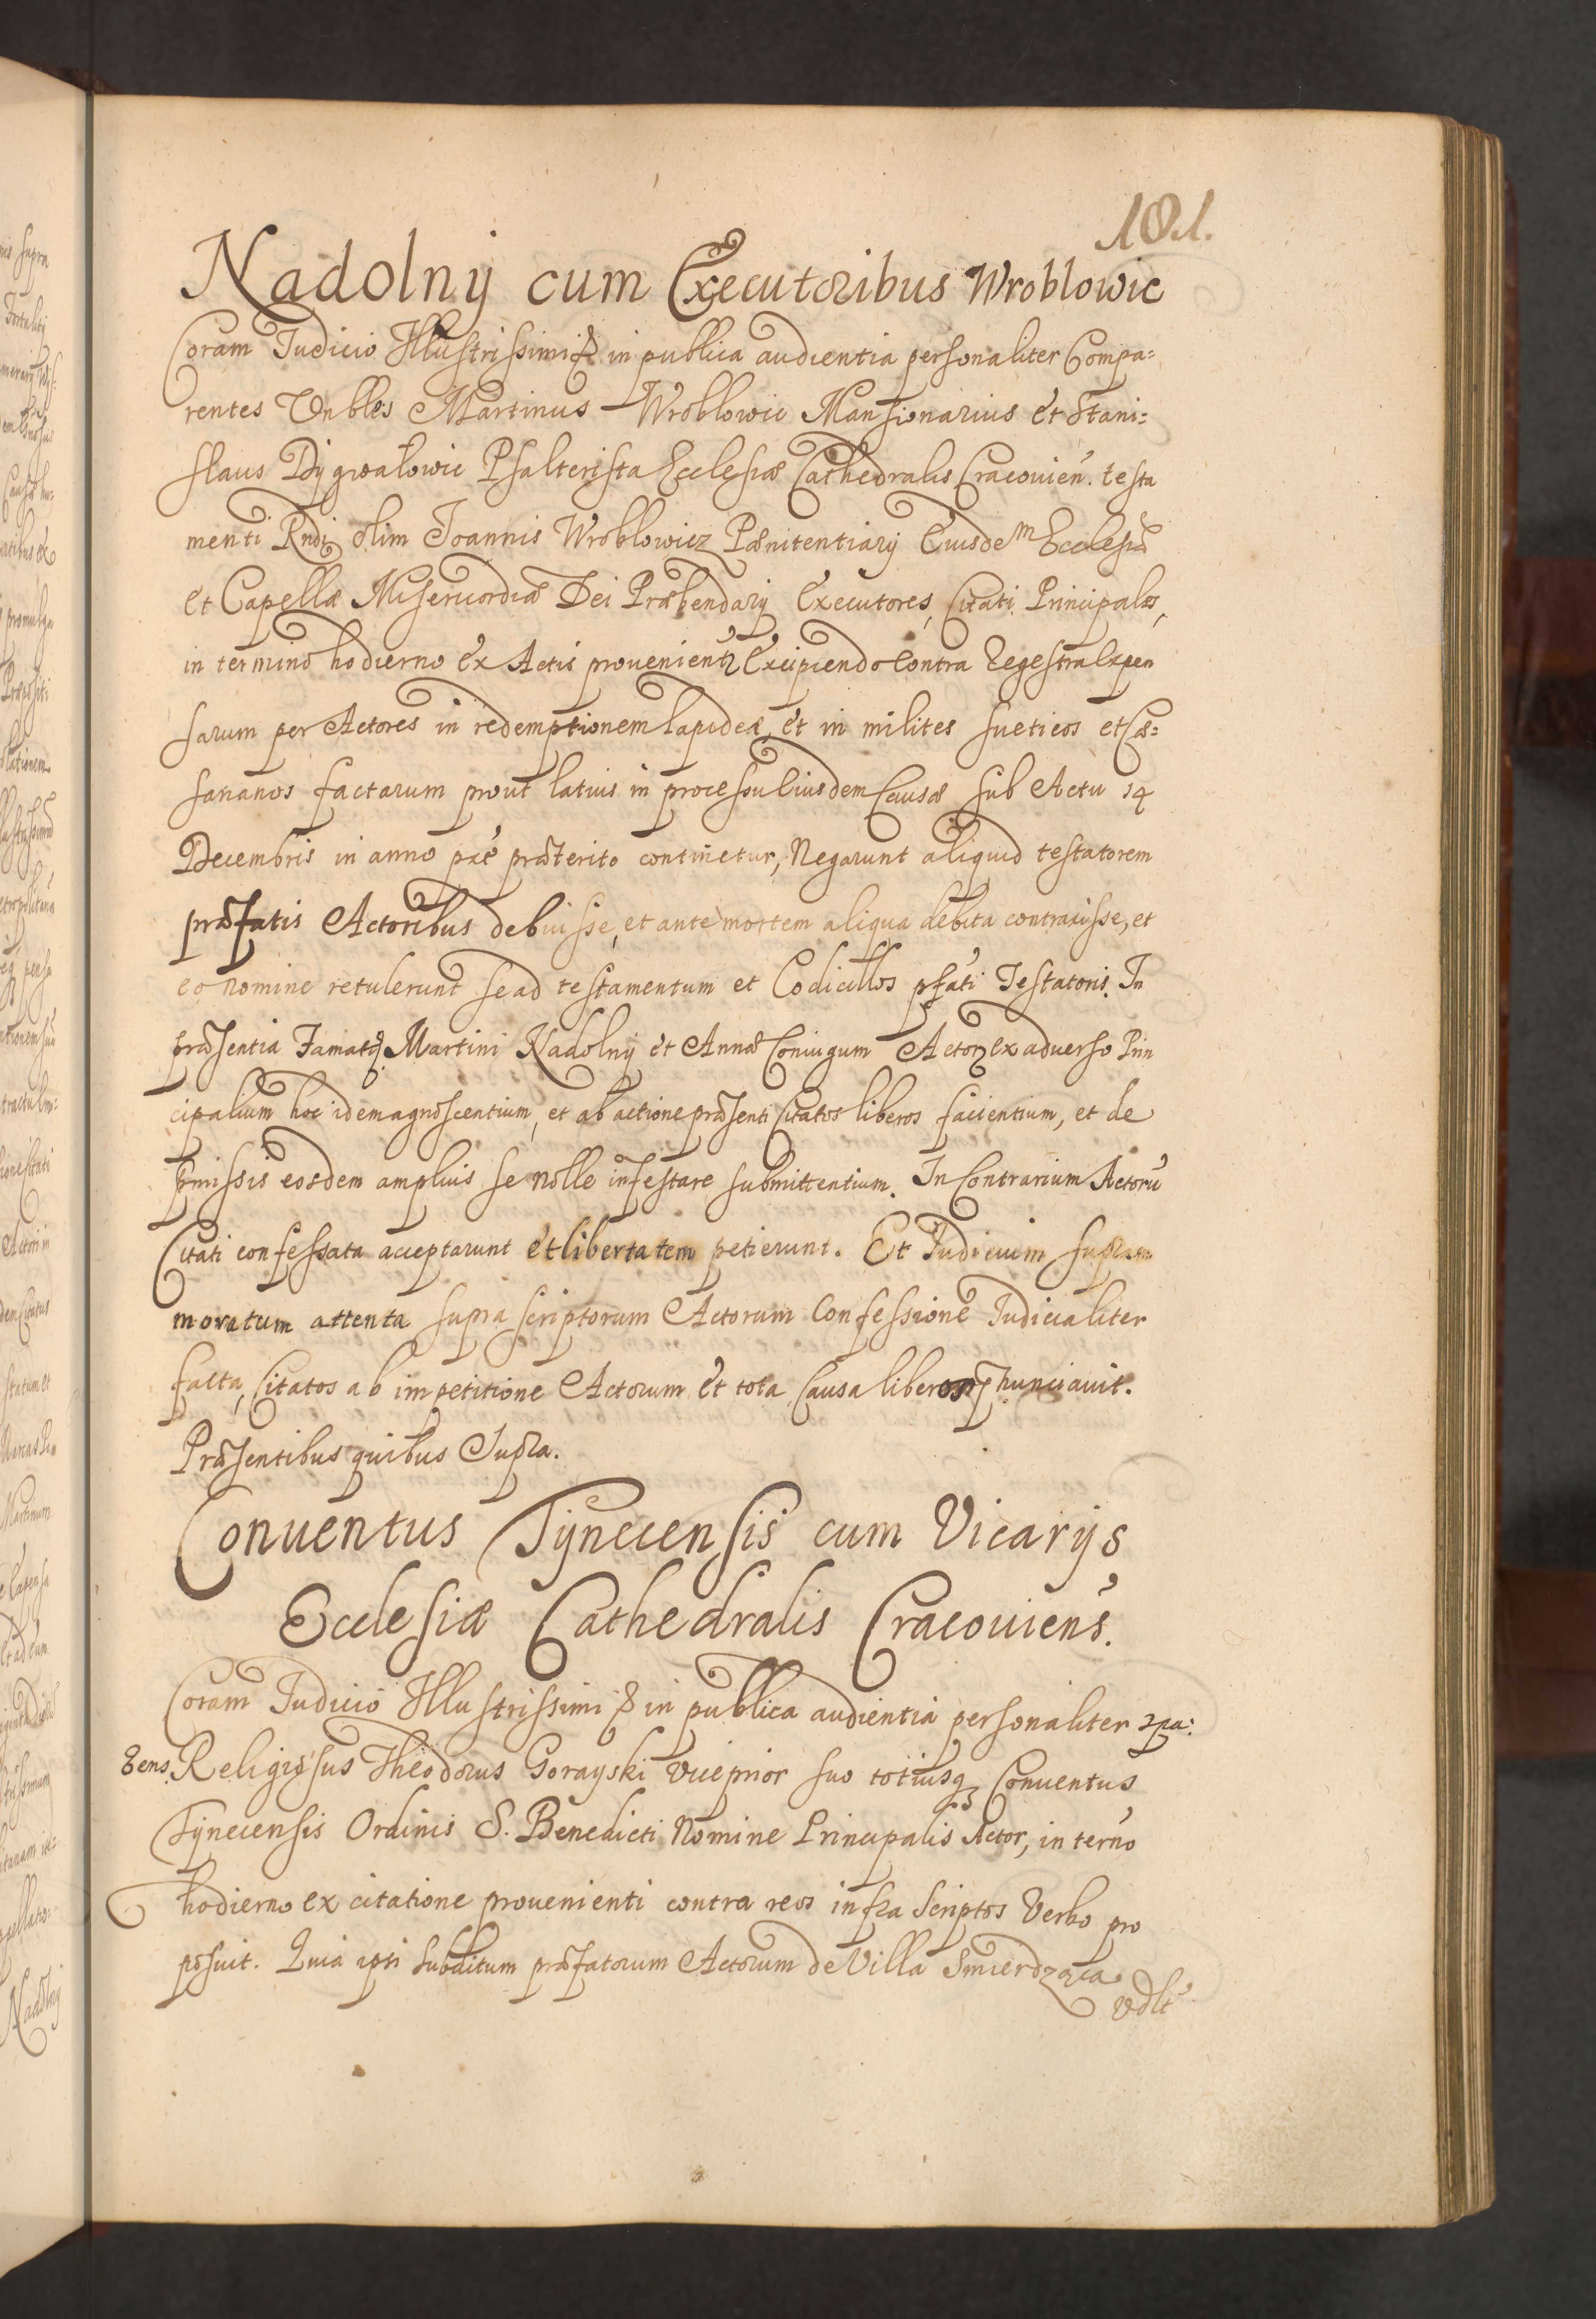 181.
Nadolny cum Executoribus Wroblowic
Coram Iudicio Illustrissimi & in publica audientia personaliter Compa=
rentes Vnbles Martinus Wroblowic Mansionarius et Stani=
slaus Dygwałowic Psalterista Ecclesiæ Cathedralis Cracouien. testa
menti Rndi olim Joannis Wroblowicz Pænitentiarij Eiusdem Ecclesiæ
et Capellæ Misericordiæ Dei Præbendarij Executores, Citati Principales,
in termino hodierno ex Actis prouenienti Excipiendo contra Regestra expen
sarum per Actores in redemptionem lapideæ, et in milites sueticos et Cæ=
sareanos factarum prout latius in processu eiusdem Causæ sub Actu 14
Decembris in anno præterito continetur, Negarunt aliquid testatorem
præfatis Actoribus debuisse, et ante mortem aliqua debita contraxisse, et
eo nomine retulerunt se ad testamentum et Codicillos pfati Testatoris. In
præsentia Famatoꝝ Martini Nadolny et Annæ Coniugum Actoꝝ ex aduerso Prin
cipalium hoc idem agnoscentium, et ab actione præsenti Citatos liberos facientium, et de
pmissis eosdem amplius se nolle infestare submittentium. In Contrarium Actorū
Citati confessata acceptarunt et libertatem petierunt. Et Iudicium supram
moratum attenta supra scriptorum Actorum Confessione Iudicialiter
facta, Citatos ab impetitione Actorum et tota Causa liberos pnunciauit.
Præsentibus quibus Supra.
Conuentus Tynecensis cum Vicarijs
Ecclesiæ Cathedralis Cracouiens.
Coram Iudicio Illustrissimi & in publica audientia personaliter ꝯpa:
rens. Religiosus Theodorus Gorayski Viceprior suo totiusqꝫ Conuentus
Tynecensis Ordinis S. Benedicti Nomine Principalis Actor, in terno
hodierno ex citatione prouenienti contra reos infra scriptos Verbo pro
posuit. Quia ipsi Subditum præfatorum Actorum de Villa Smierdząca
vdlt